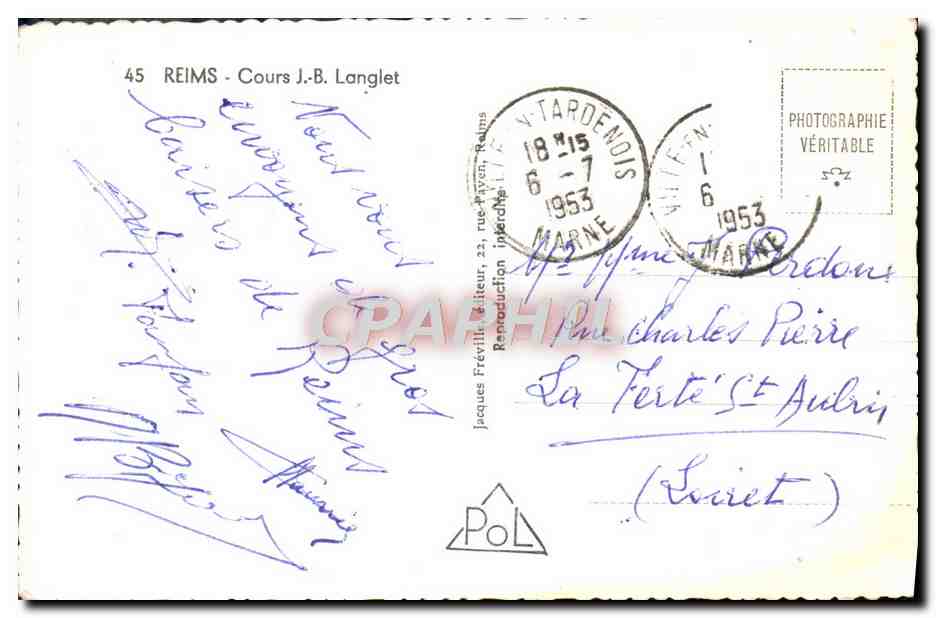 45 REIMS - Cours J.-B. Langlet
Nous vous
envoyons de gros
baisers de Reims
Maurice
Jacques Fréville, éditeur, 22, rue Payen, Reims
Reproduction interdite
EN-TARDENOIS
18 H 15
6 - 7
1953
MARNE
VILLE-EN-
1
6
1953
MARNE
PHOTOGRAPHIE
VÉRITABLE
Mr Mme J
Rue Charles Pierre
La Ferté St Aubin
(Loiret)
PoL
CPARHIU